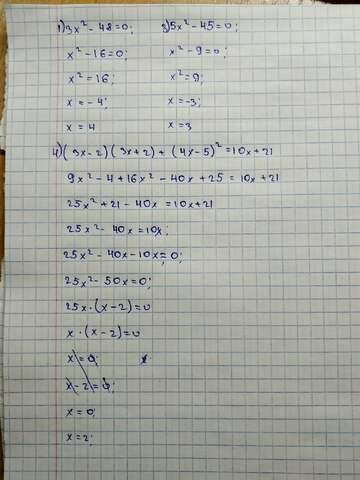 1) 3x² - 48 = 0;
x² - 16 = 0;
x² = 16;
x = -4;
x = 4
3) 5x² - 45 = 0;
x² - 9 = 0;
x² = 9;
x = -3;
x = 3
4) (3x - 2)(3x + 2) + (4x - 5)² = 10x + 21
9x² - 4 + 16x² - 40x + 25 = 10x + 21
25x² + 21 - 40x = 10x + 21
25x² - 40x = 10x;
25x² - 40x - 10x = 0;
25x² - 50x = 0;
25x · (x - 2) = 0
x · (x - 2) = 0
x = 0;
x - 2 = 0;
x = 0;
x = 2;